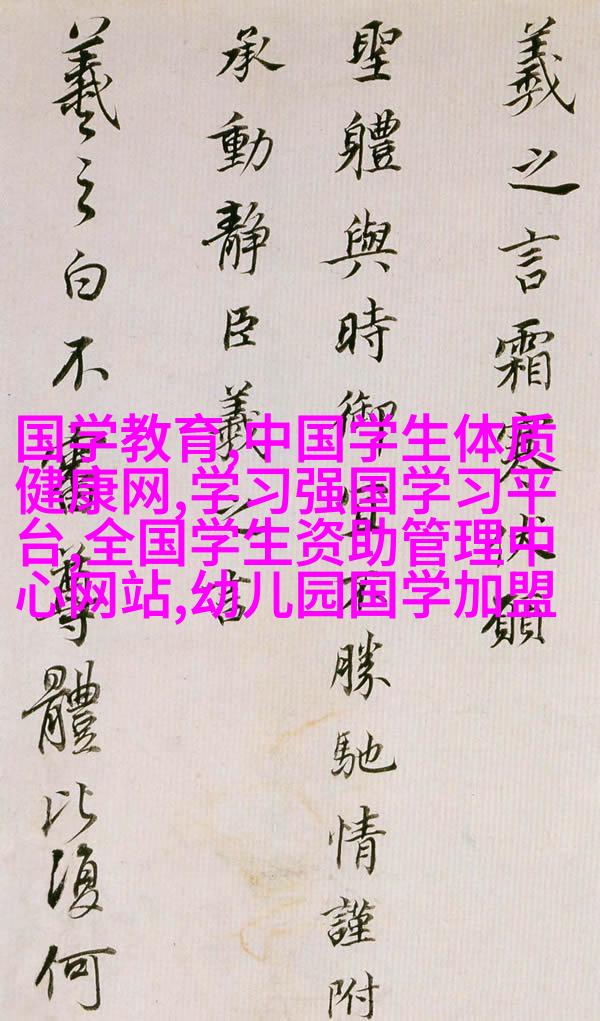 義之言霜寒伏願
聖體與時御不勝馳情謹附
承動靜臣義之
羲之白不審尊體比復何
国学教育,中国学生体质
健康网,学习强国学习平
台,全国学生资助管理中
心网站,幼儿园国学加盟